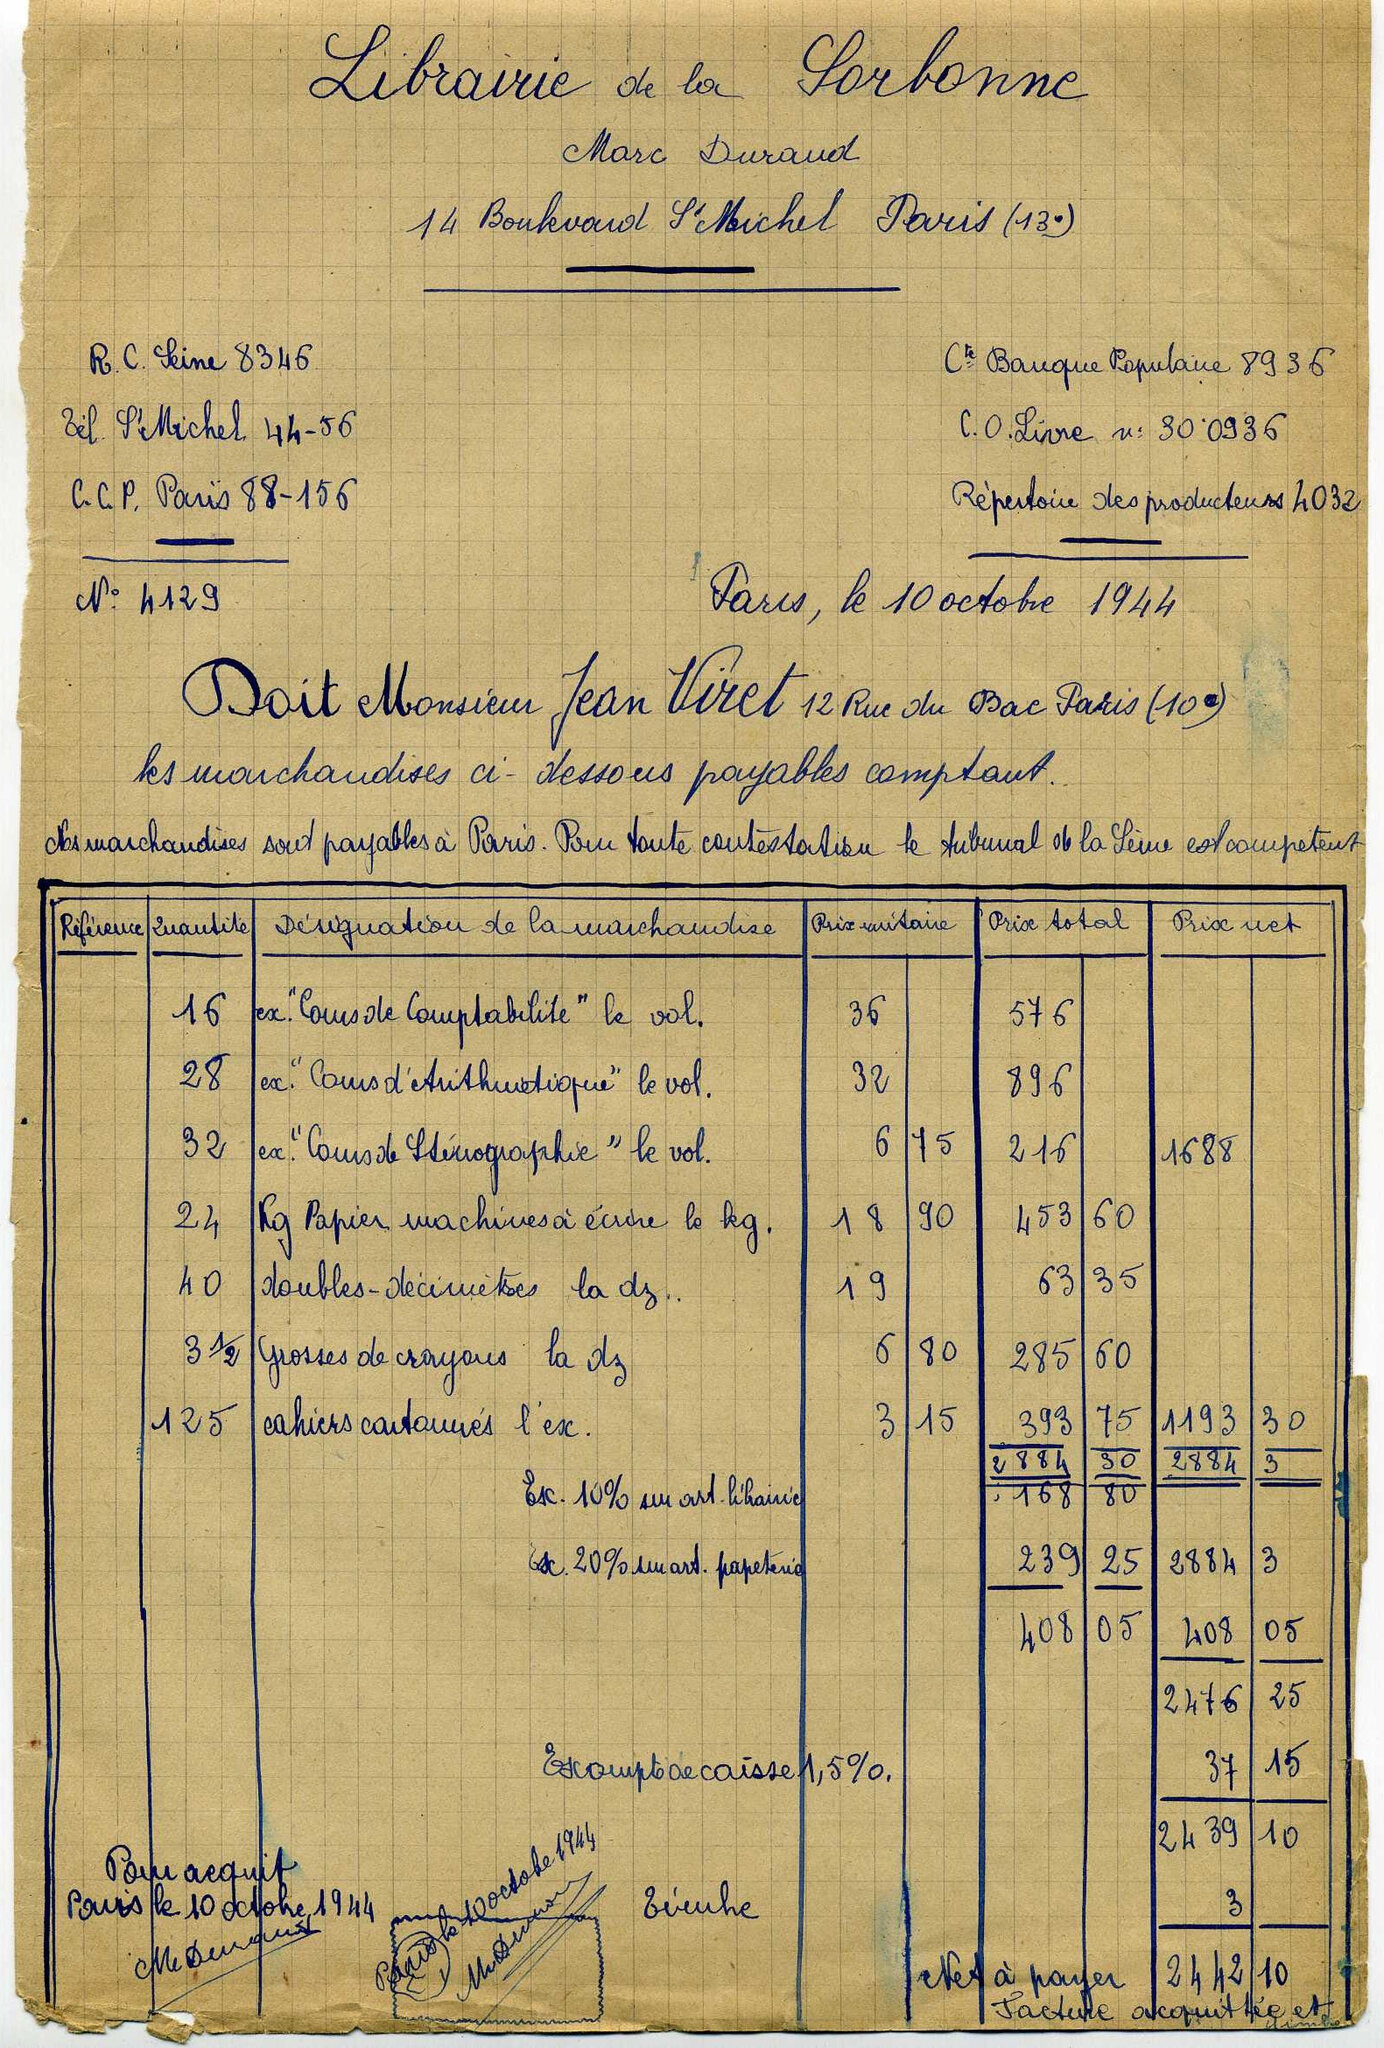 Librairie de la Sorbonne
Marc Durand
14 Boulevard St Michel Paris (13e)
R. C. Seine 8346
Tél. St Michel 44-56
C.C.P. Paris 88-156
N° 4129
Cte Banque Populaire 8936
C.O. Livre n: 30.0936
Répertoire des producteurs 4032
Paris, le 10 octobre 1944
Doit Monsieur Jean Viret 12 Rue du Bac Paris (10e)
les marchandises ci-dessous payables comptant.
Nos marchandises sont payables à Paris. Pour toute contestation le tribunal de la Seine est compétent
Référence Quantité Désignation de la marchandise Prix unitaire Prix total Prix net
16 ex. "Cours de Comptabilité" le vol. 36 576
28 ex. "Cours d'Arithmétique" le vol. 32 896
32 ex. "Cours de Sténographie" le vol. 6 75 216 1688
24 Kg Papier machines à écrire le kg. 18 90 453 60
40 doubles-décimètres la dz.. 19 63 35
3 1/2 Grosses de crayons la dz 6 80 285 60
125 cahiers cartonnés l'ex. 3 15 393 75 1193 30
2884 30 2884 3
Esc. 10% sur art. librairie 168 80
Esc. 20% sur art. papeterie 239 25 2884 3
408 05 408 05
2476 25
Escompte de caisse 1,5%. 37 15
2439 10
Pour acquit
Paris le 10 octobre 1944
M. Durand
Paris le 10 octobre 1944
M. Durand
Timbre 3
Net à payer 2442 10
Facture acquittée et
timbre